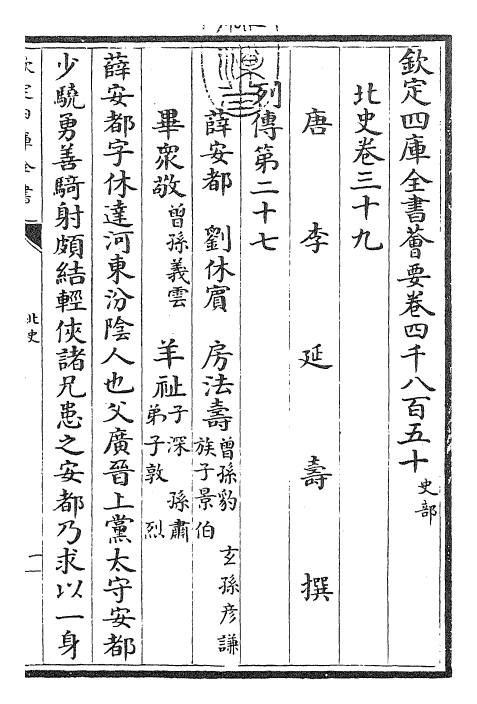 欽定四庫全書薈要卷四千八百五十 史部
北史卷三十九
唐 李 延 壽 撰
列傳第二十七
薛安都 劉休賓 房法壽 曾孫豹 族子景伯 玄孫彦謙
畢衆敬 曾孫義雲 羊祉 子深 弟子敦 孫肅 烈
薛安都字休達河東汾陰人也父廣晉上黨太守安都
少驍勇善騎射頗結輕俠諸兄患之安都乃求以一身
欽定四庫全書
北史
一